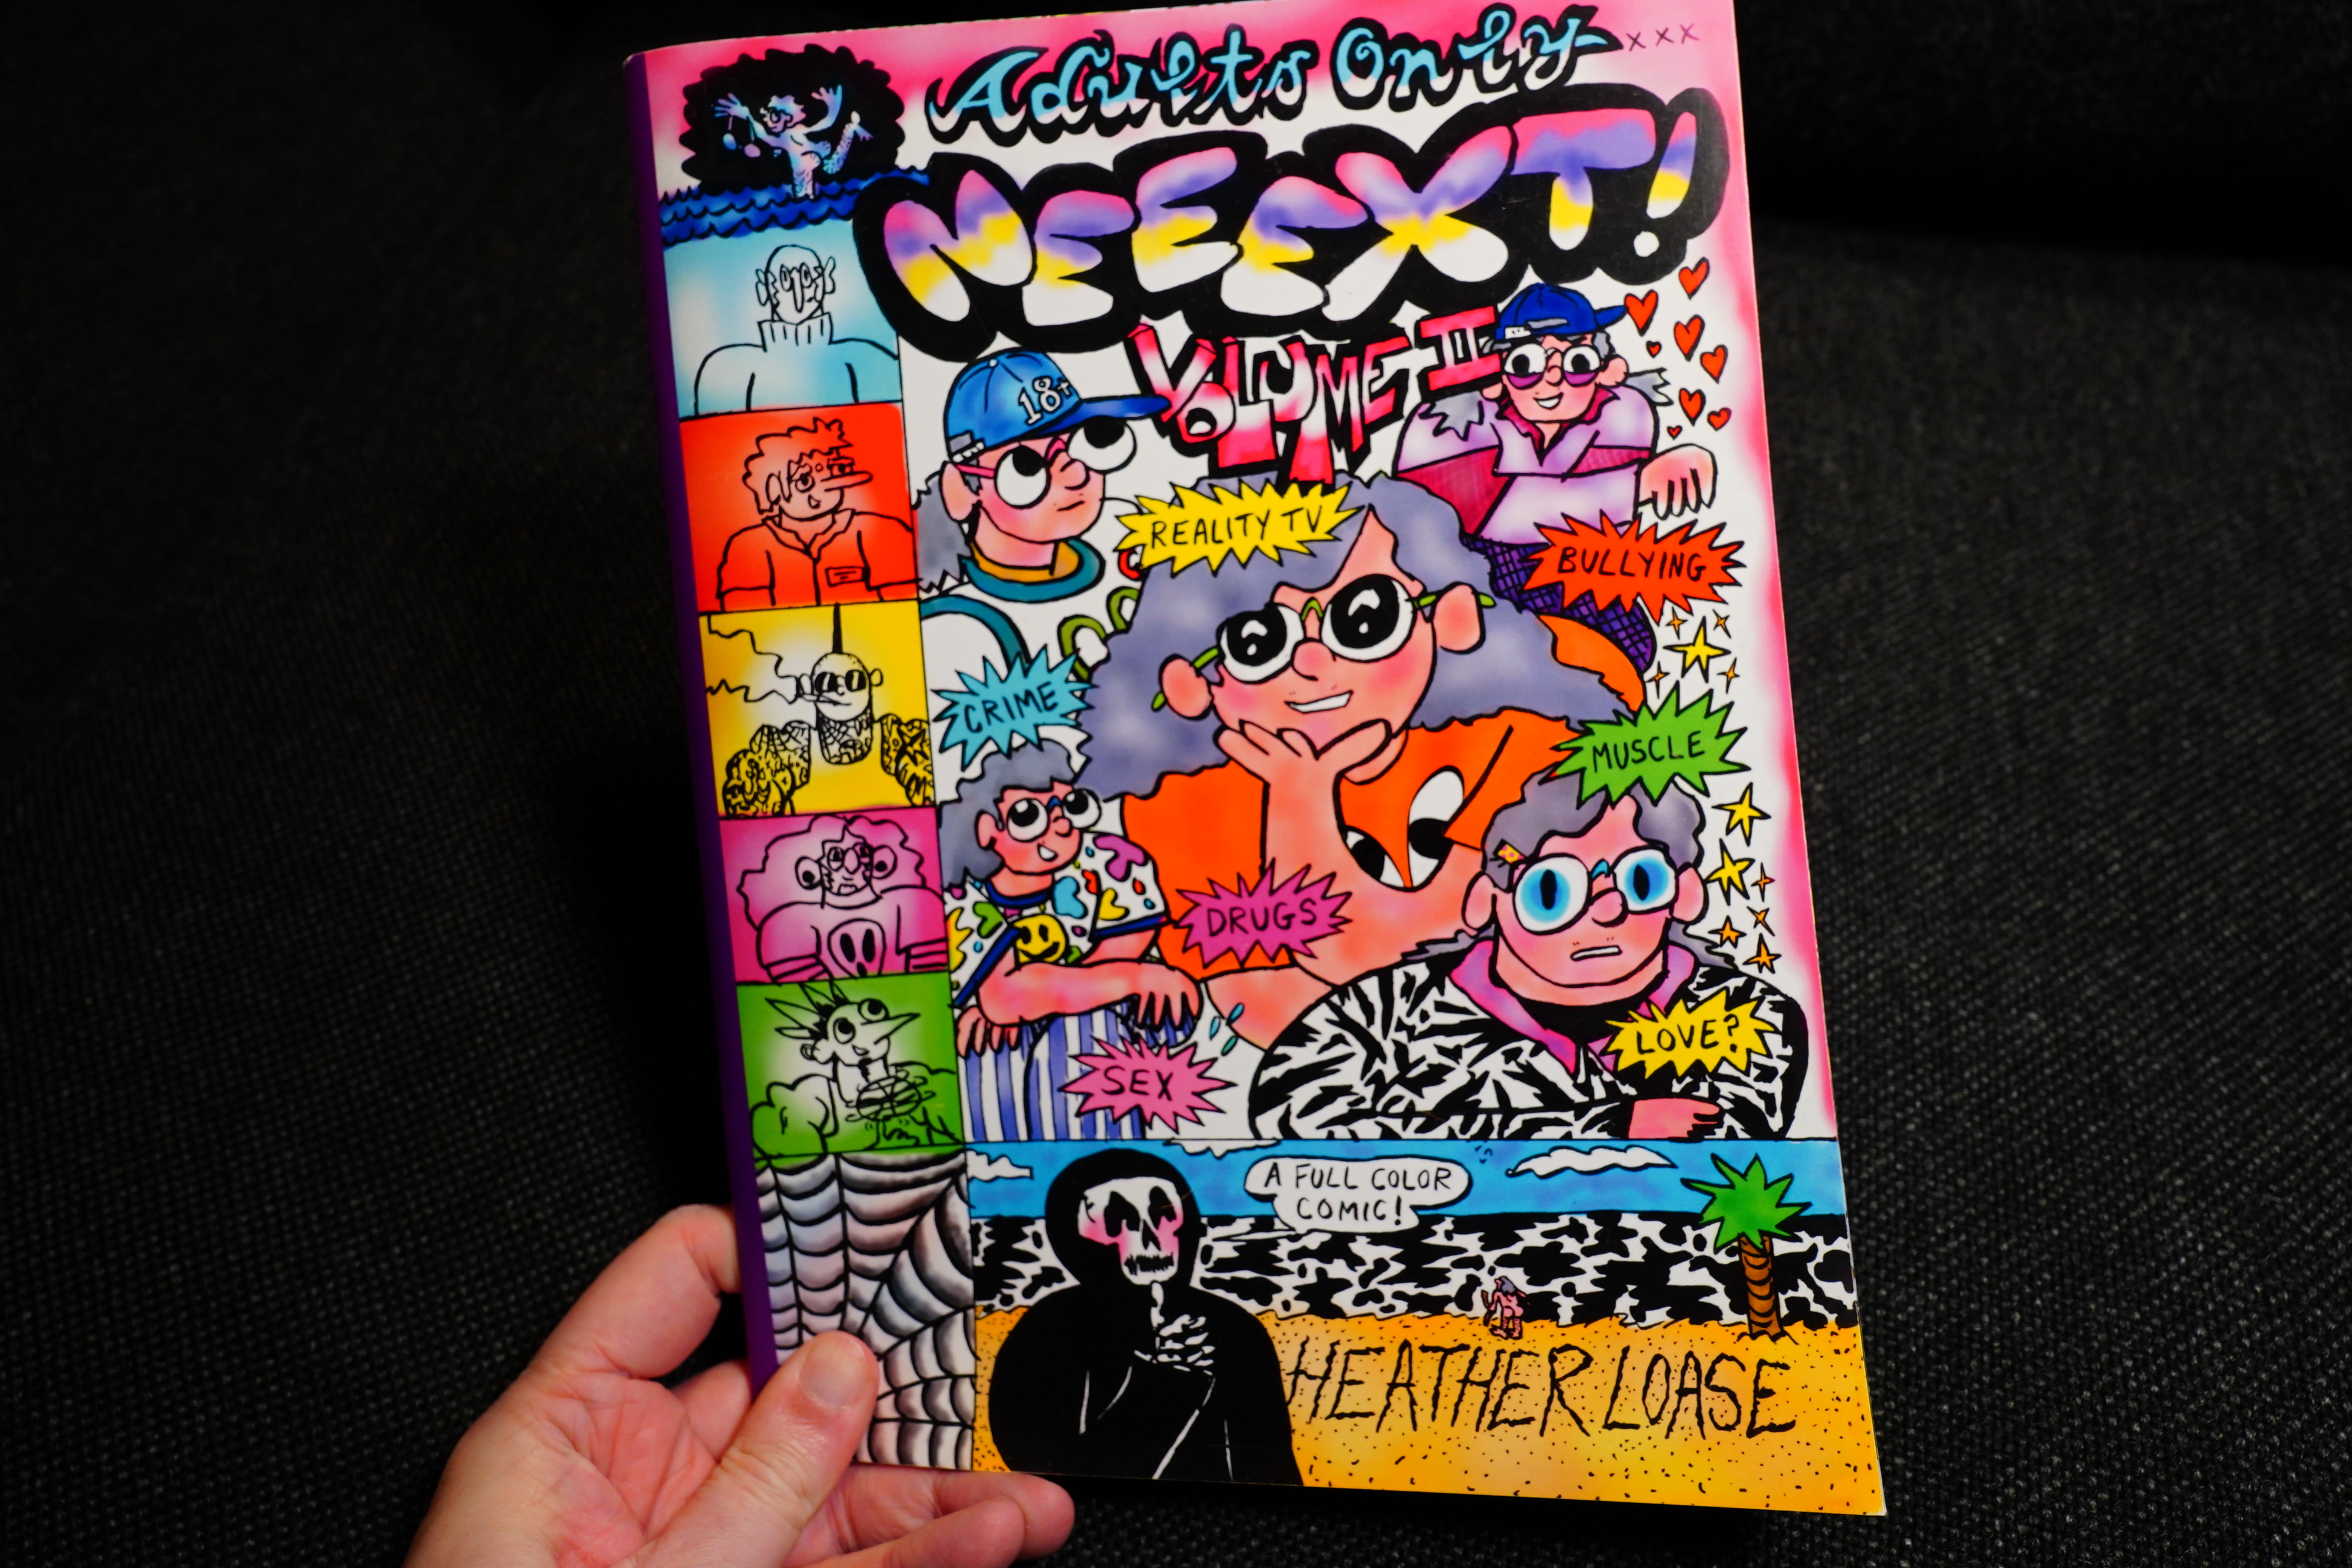 Adults Only xxx
NEEEXT!
VOLUME II
18+
REALITY TV
BULLYING
CRIME
MUSCLE
DRUGS
LOVE?
SEX
A FULL COLOR
COMIC!
HEATHER LOASE